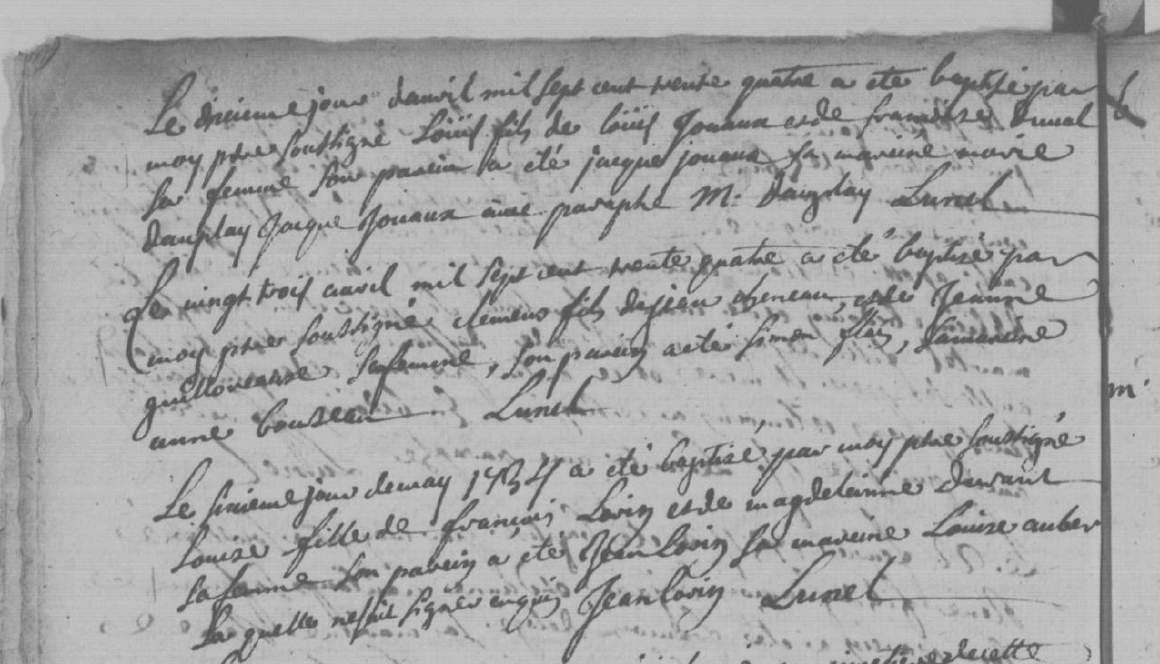 Le dixieme jour davril mil sept cent trente quatre a ete baptisé par
moy ptre soussigné Loüis fils de loüis Jouaux et de francoise Duual
sa femme son parein a été jacque jouaux sa mareine marie
dauplay Jacque Jouaux avec paraphe M. Dauplay Lunel
Le vingt trois avril mil sept cent trente quatre a été baptisé par
moy ptre soussigné clemens fils de jean cheneau, et de Jeanne
sa femme, son parein a été simon, sa mareine
anne bouzeau Lunel
Le sixieme jour de may 1734 a eté baptisé par moy ptre soussigné
Louise fille de françois Lorin et de magdeleinne Durant
sa femme son parein a été Jean Lorin sa mareine Louise auber
la quelle ne scait signer enqui Jean lorin Lunel
de cette